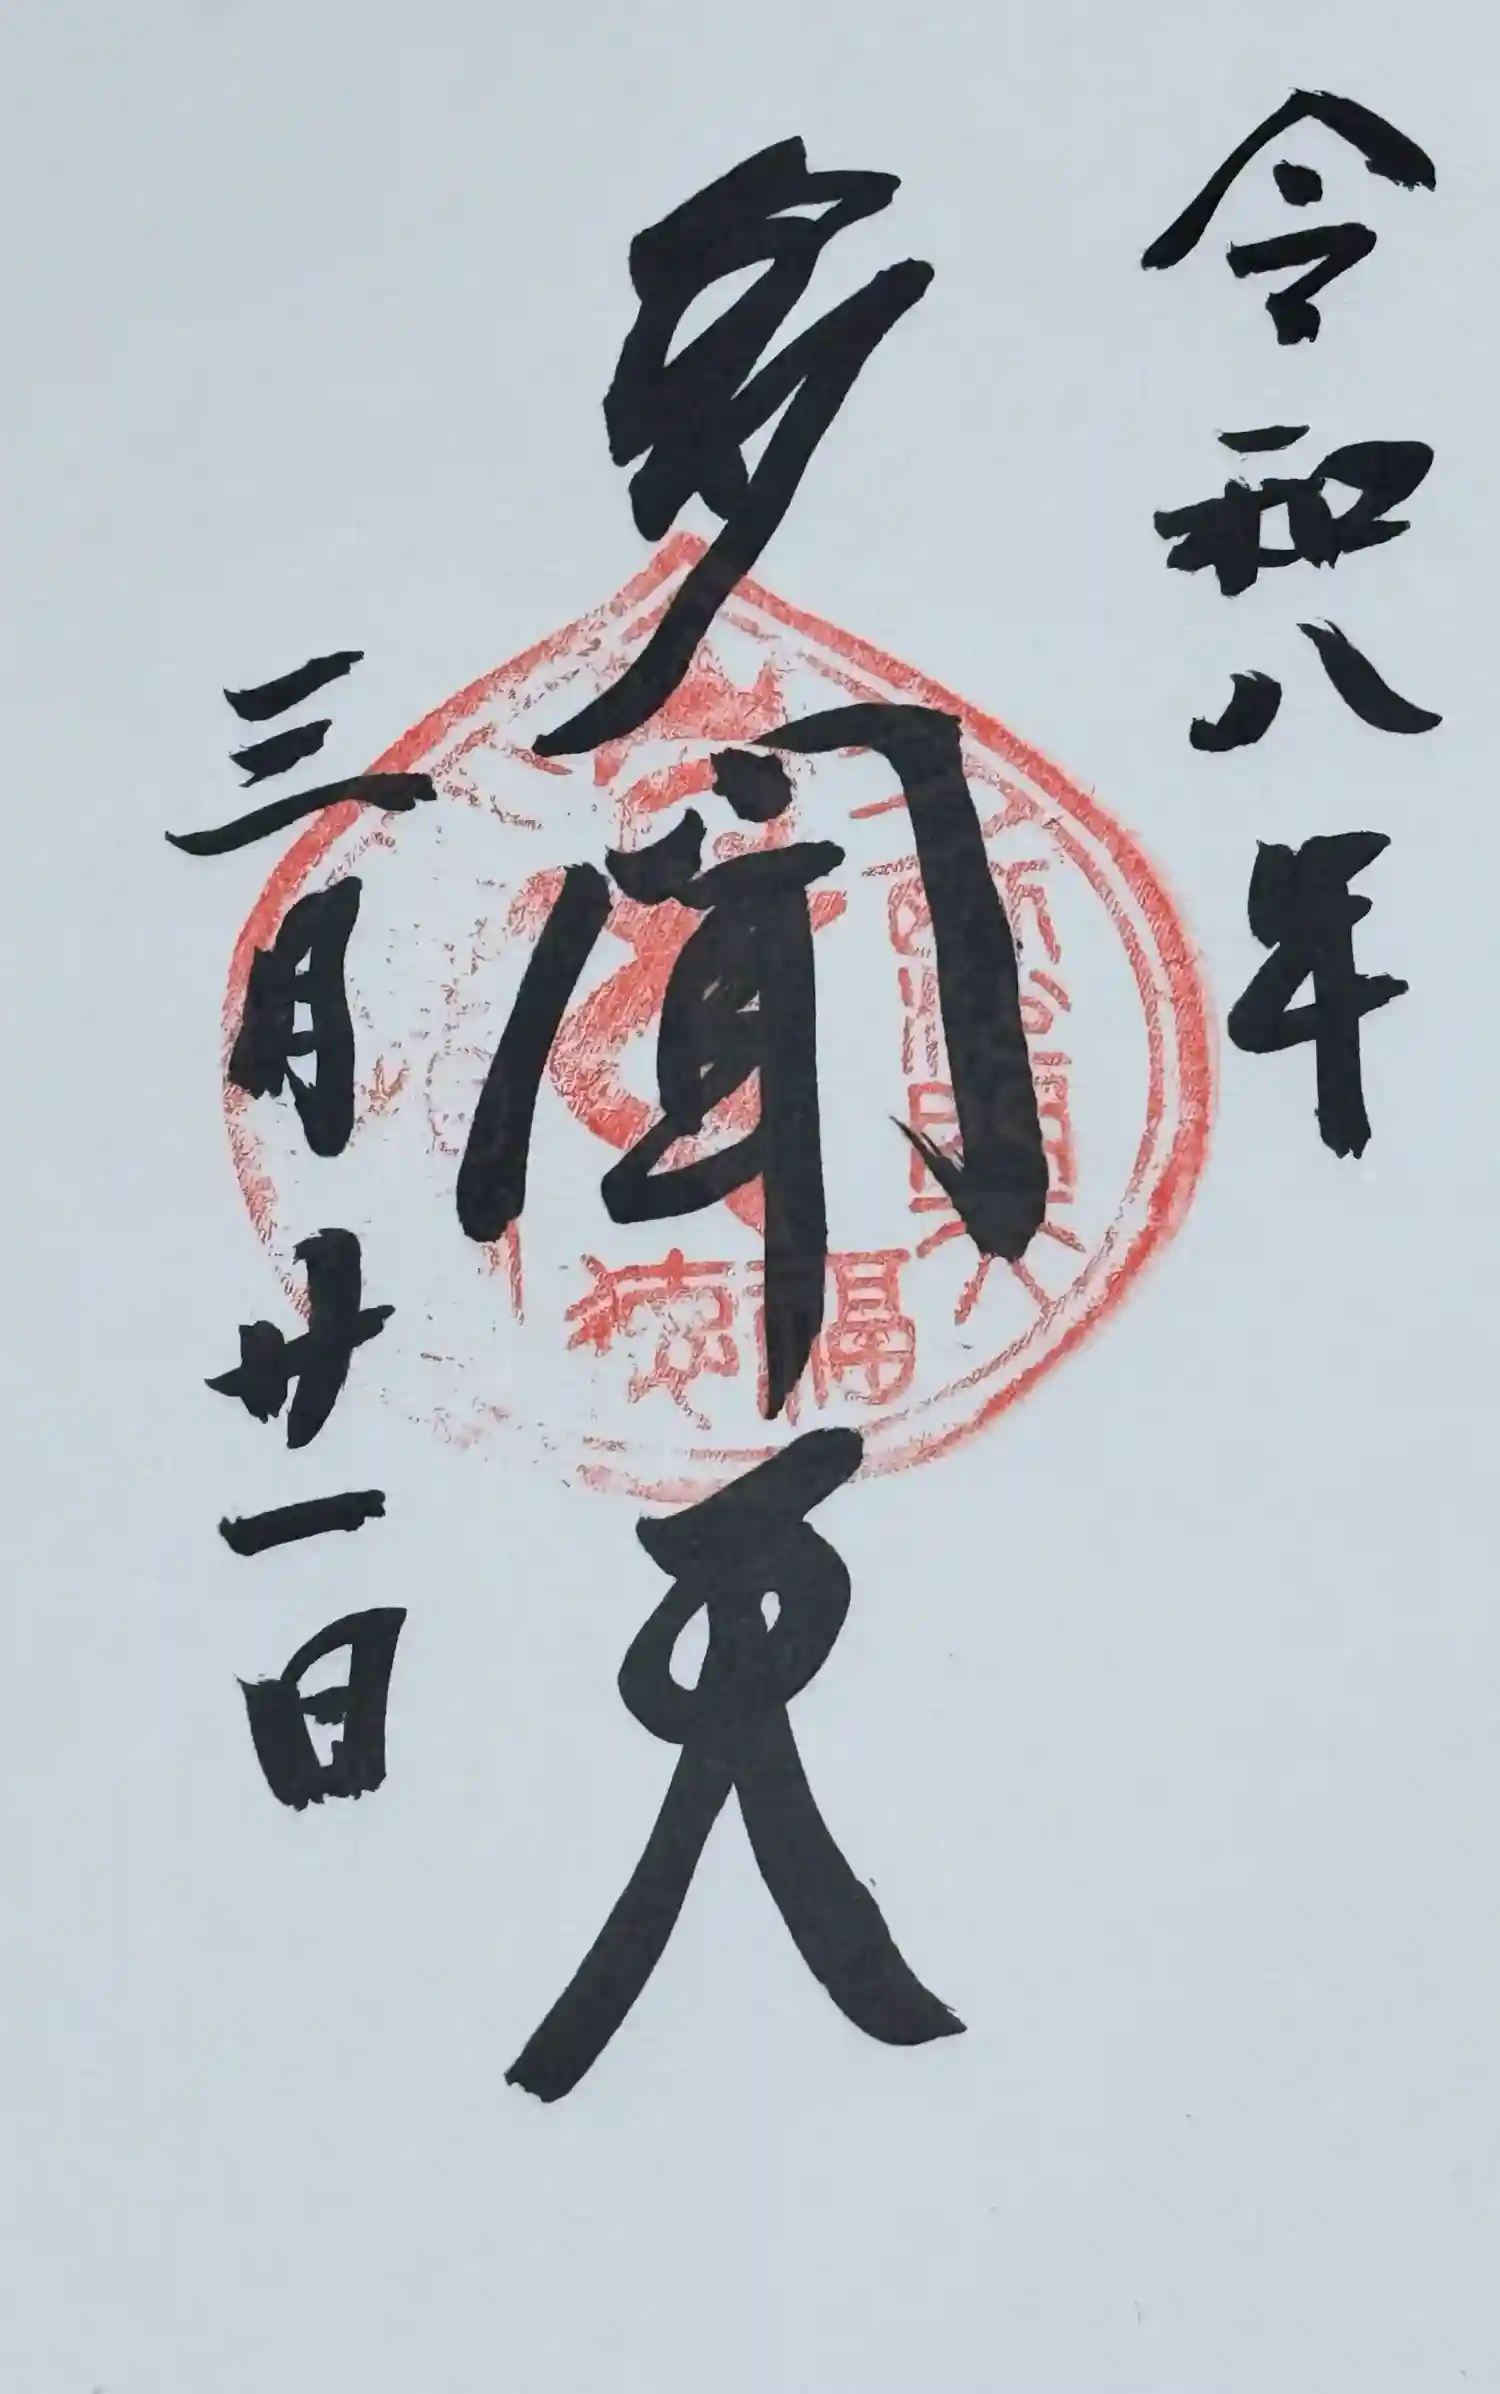 令和八年
多聞天
三月廿一日
福徳